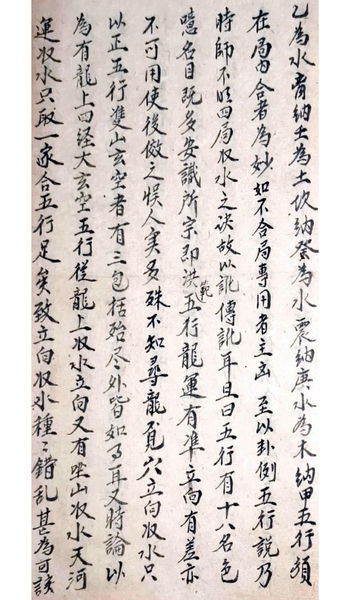 乙為水艮納土為土坎納癸為水震納庚水為木納甲五行須
在局內合者為妙如不合局專用者主凶至以卦例五行說乃
時師不明四局收水之决故以訛傳訛耳且曰五行有十八名色
噫名目既多安識所宗即洪範五行龍運有準立向有差亦
不可用使後倣之悮人实多殊不知尋龍覓穴立向収水只
以正五行雙山玄空者有三包括殆尽外皆如了耳又時論以
為有龍上四经大玄空五行従龍上収水立向又有坐山収水天河
運収水只取一家合五行足矣致立向収水種〻錯乱甚為可詼